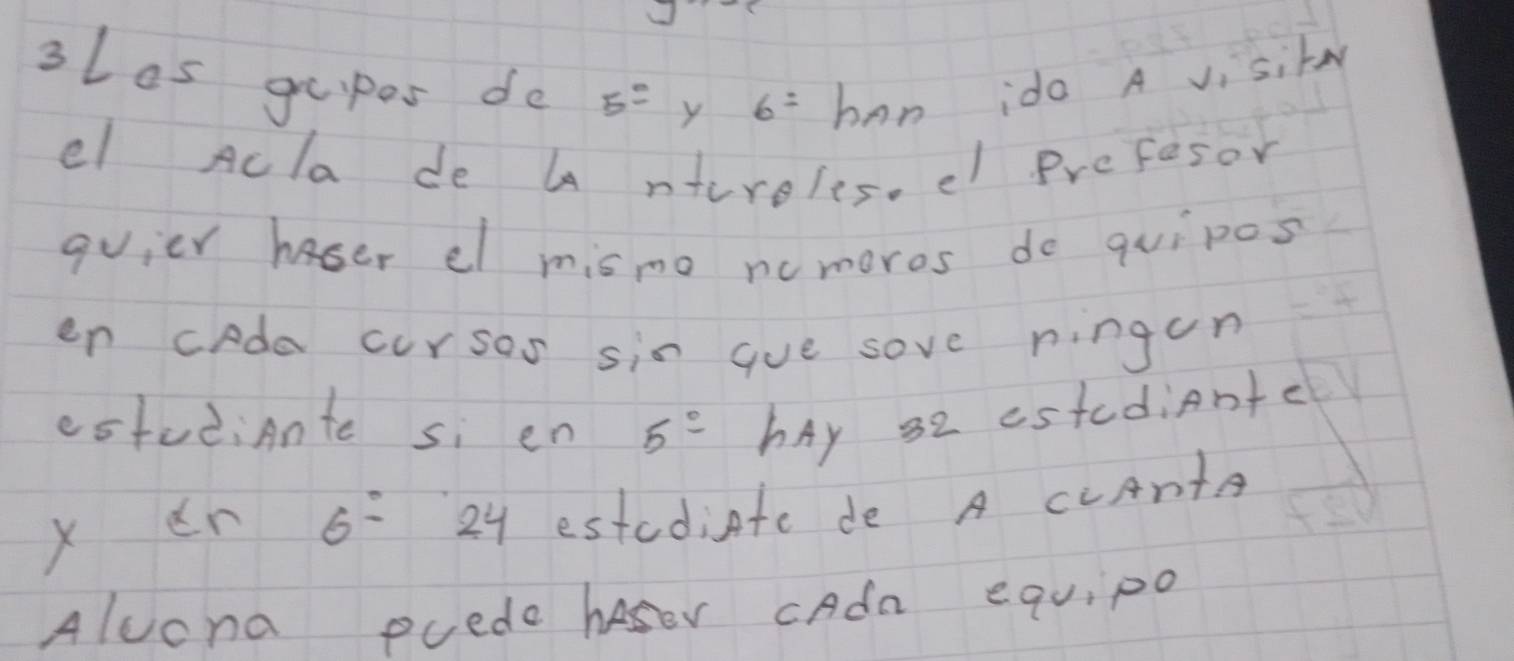 3 Los grupos de 5º y 6º han ido A visitar
el Acla de la nturoles. el Profesor
quier haser el mismo numoros de quipos
en cAda cursos sin que sove ningun
estudiAnte si en 5º hAy 32 estudiAnte
y en 6º 24 estudiAte de A cuAntA
Aluona puede hAser cAda equipo